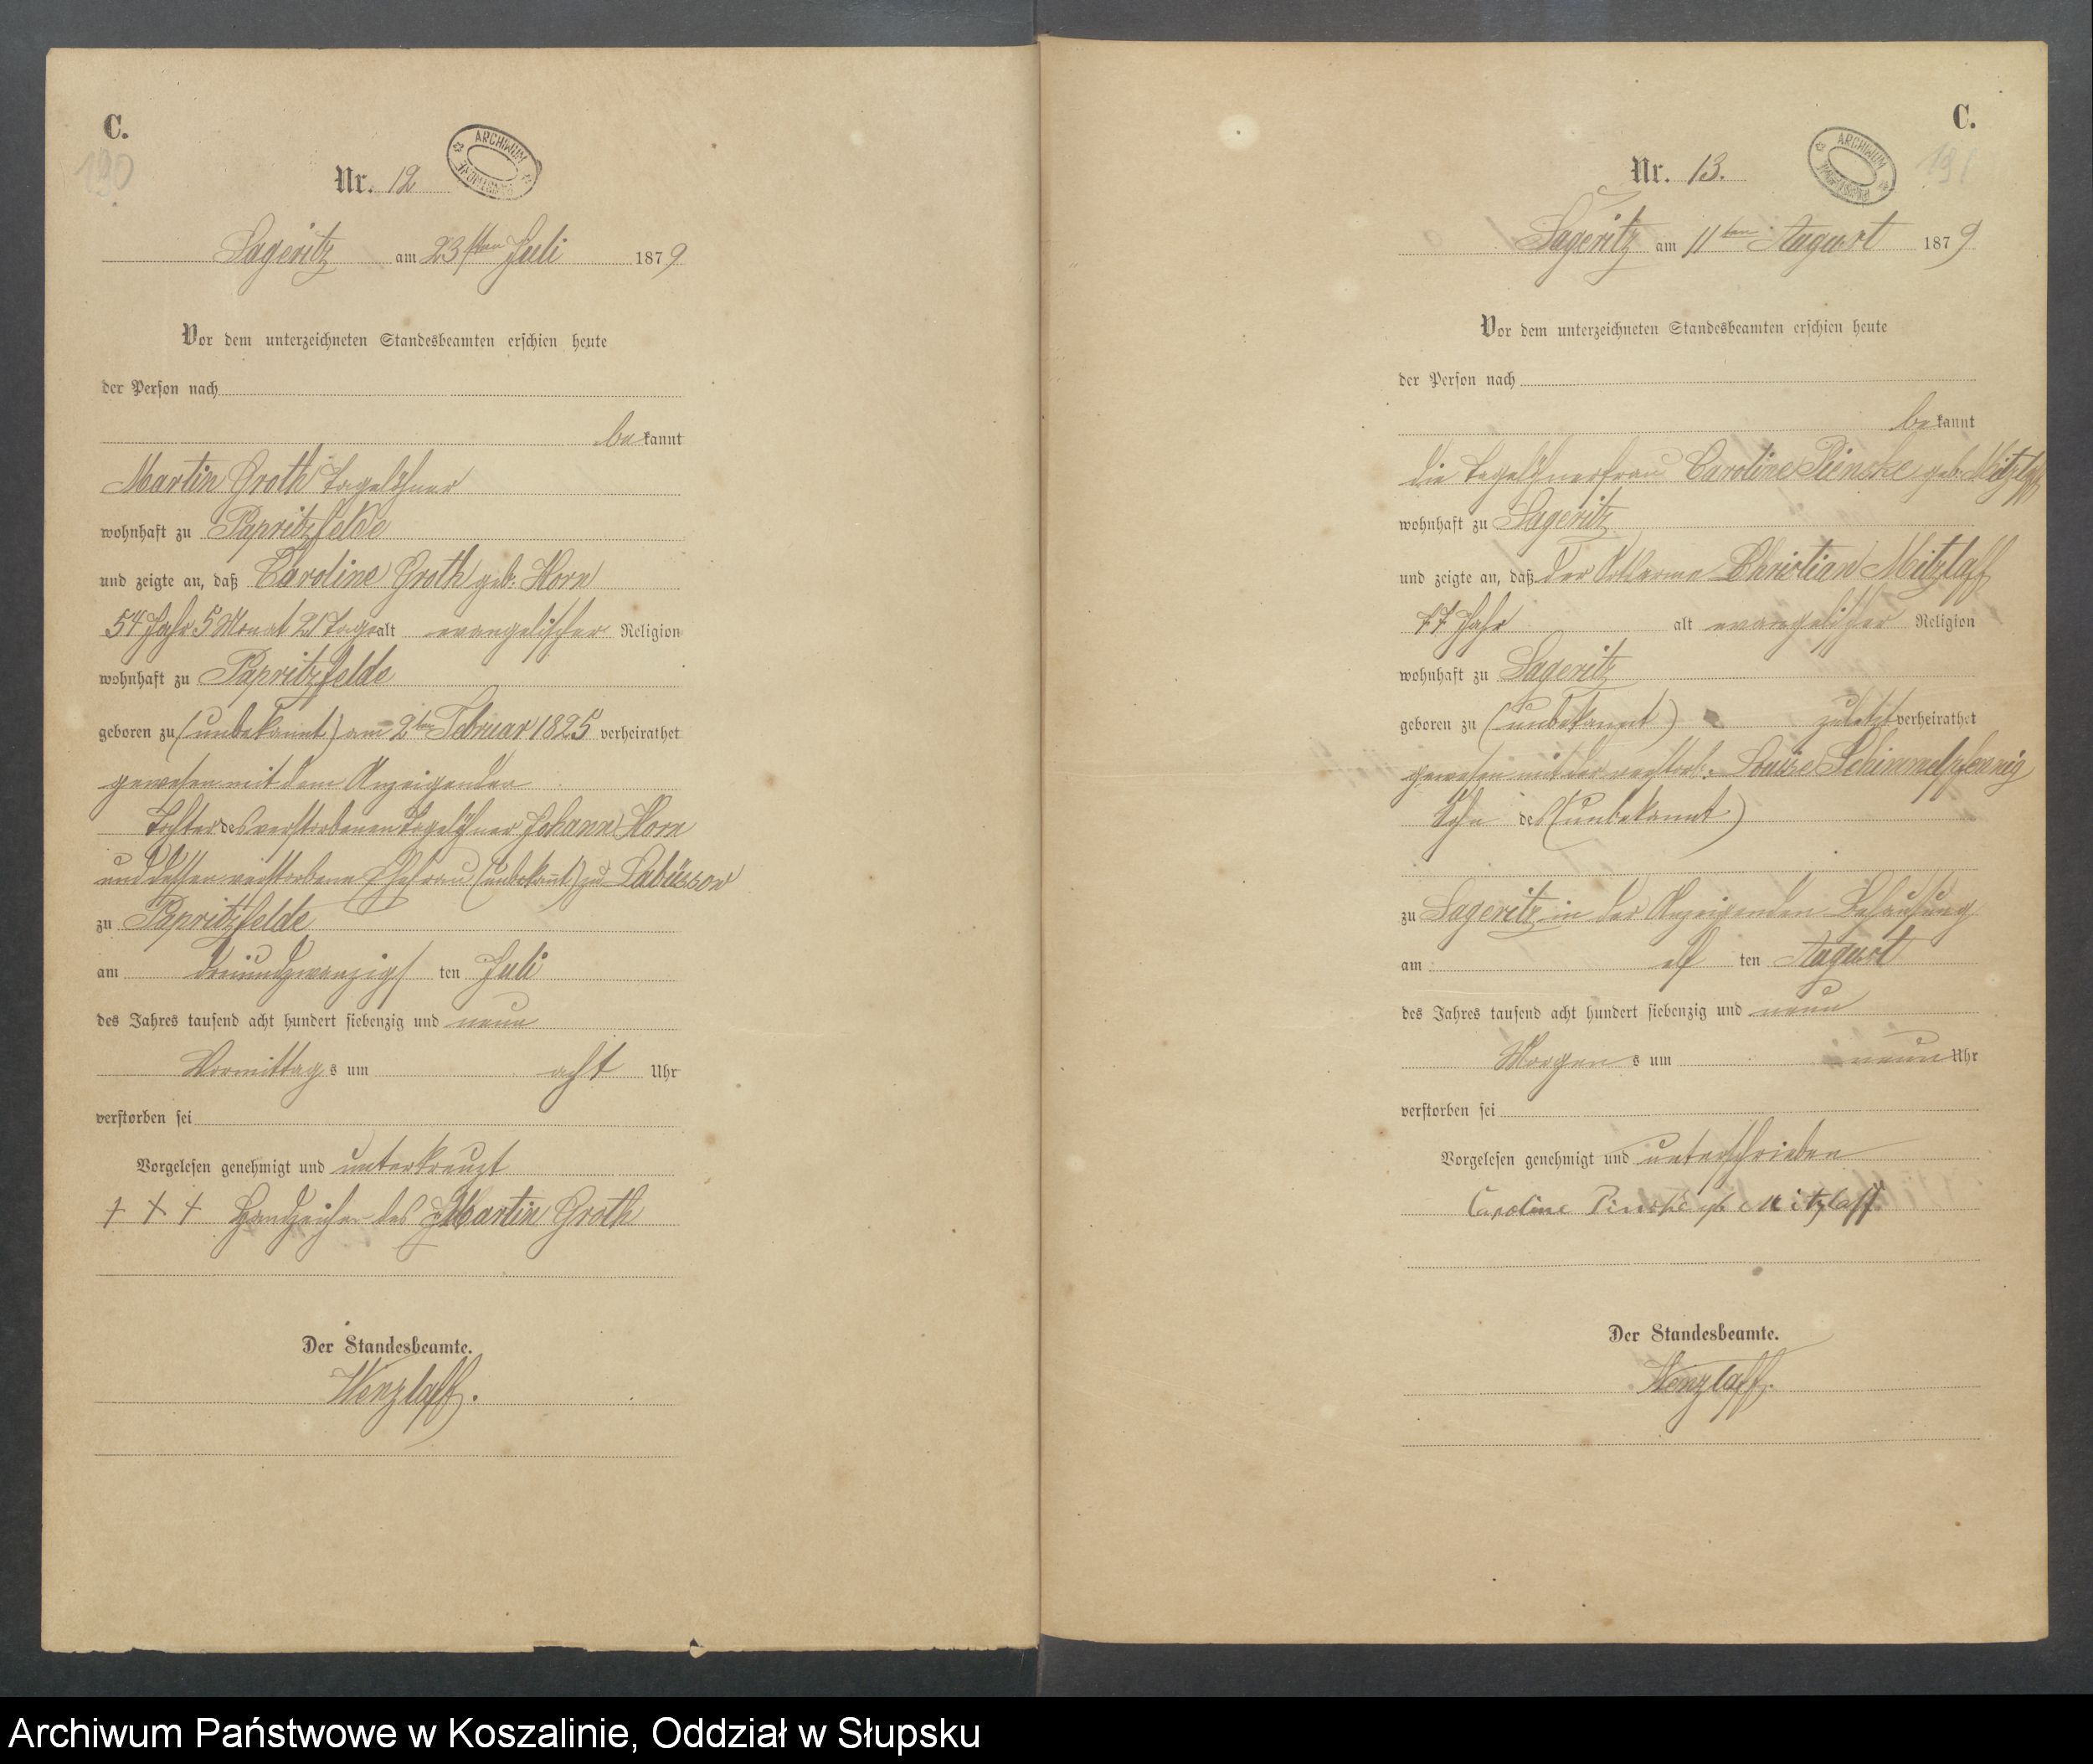 C.
190
Nr. 12
ARCHIWUM PAŃSTWOWE
Sageritz am 23sten Juli 1879
Vor dem unterzeichneten Standesbeamten erschien heute
der Person nach
bekannt
Martin Groth Tagelöhner
wohnhaft zu Papritzfelde
und zeigte an, daß Caroline Groth geb. Horn
54 Jahr 5 Monat 21 Tage alt evangelischer Religion
wohnhaft zu Papritzfelde
geboren zu (unbekannt) am 2ten Februar 1825 verheirathet
gewesen mit dem Anzeigenden
Tochter des verstorbenen Tagelöhner Johann Horn
und dessen verstorbene Ehefrau (unbekannt) zu Labüssow
zu Papritzfelde
am dreiundzwanzigsten Juli
des Jahres tausend acht hundert siebenzig und neun
Vormittags um acht Uhr
verstorben sei
Vorgelesen genehmigt und unterkreuzt
+ + + Handzeichen des Martin Groth
Der Standesbeamte.
Wenzlaff.
C.
191
Nr. 13.
ARCHIWUM PAŃSTWOWE
Sageritz am 11ten August 1879
Vor dem unterzeichneten Standesbeamten erschien heute
der Person nach
bekannt
die Tagelöhnerfrau Caroline Pienske geb. Mitzlaff
wohnhaft zu Sageritz
und zeigte an, daß der Ortsarme Christian Mitzlaff
77 Jahr alt evangelischer Religion
wohnhaft zu Sageritz
geboren zu (unbekannt) zuletzt verheirathet
gewesen mit der verstorb. Louise Schimmelpfennig
Sohn des (unbekannt)
zu Sageritz in der Anzeigenden Behausung
am elften August
des Jahres tausend acht hundert siebenzig und neun
Morgens um neun Uhr
verstorben sei
Vorgelesen genehmigt und unterschrieben
Caroline Pinske gb Mitzlaff
Der Standesbeamte.
Wenzlaff.
Archiwum Państwowe w Koszalinie, Oddział w Słupsku